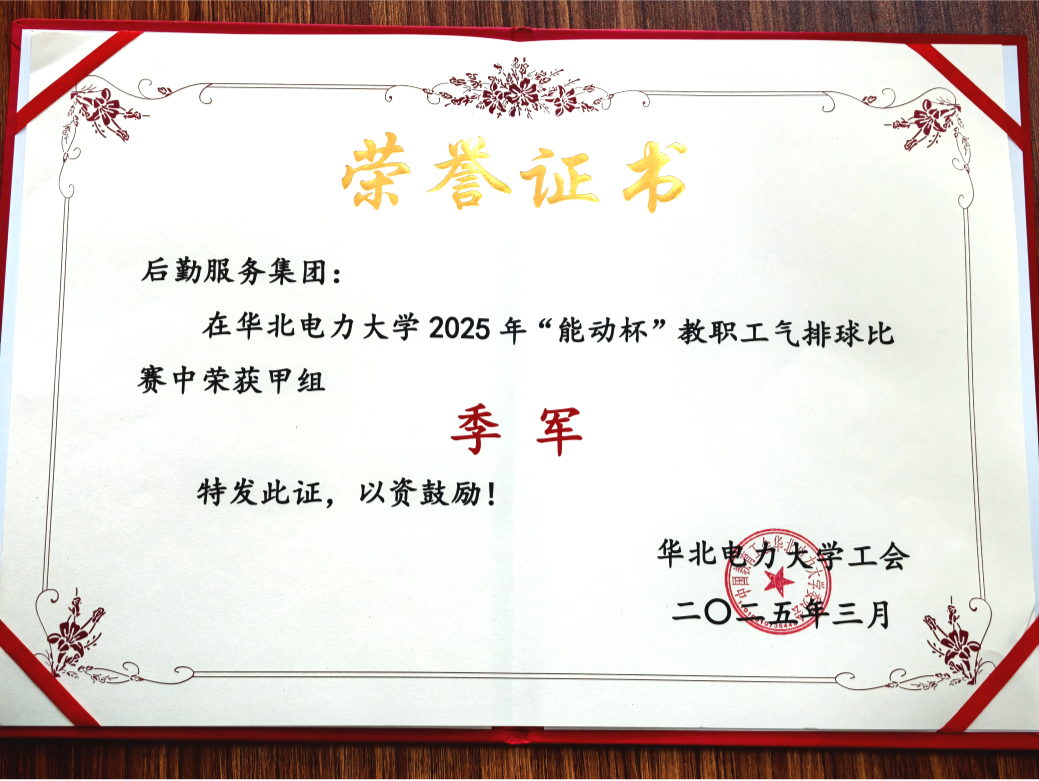 荣誉证书
后勤服务集团：
在华北电力大学2025年“能动杯”教职工气排球比
赛中荣获甲组
季军
特发此证，以资鼓励！
华北电力大学工会
二〇二五年三月